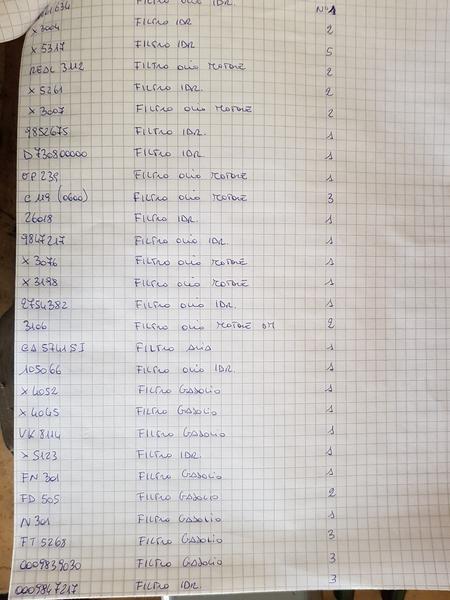 FILTRO OLIO IDR. N°1
X 3004 FILTRO IDR 2
X 5317 FILTRO IDR 5
REAL 3112 FILTRO OLIO MOTORE 2
X 5261 FILTRO IDR. 2
X 3007 FILTRO OLIO MOTORE 2
9852675 FILTRO IDR. 1
D730800000 FILTRO IDR. 1
OP 239 FILTRO OLIO MOTORE 1
C 119 (0600) FILTRO OLIO MOTORE 3
26018 FILTRO IDR. 1
9847217 FILTRO OLIO IDR. 1
X 3076 FILTRO OLIO MOTORE 1
X 3198 FILTRO OLIO MOTORE 1
2754382 FILTRO OLIO IDR. 1
3106 FILTRO OLIO MOTORE OM 2
CA 5741 SI FILTRO ARIA 1
105066 FILTRO OLIO IDR. 1
X 4052 FILTRO GASOLIO 1
X 4045 FILTRO GASOLIO 1
VK 8114 FILTRO GASOLIO 1
X 5123 FILTRO IDR. 1
FN 301 FILTRO GASOLIO 1
FD 505 FILTRO GASOLIO 2
N 301 FILTRO GASOLIO 1
FT 5268 FILTRO GASOLIO 3
0009839030 FILTRO GASOLIO 3
0009847217 FILTRO IDR. 3